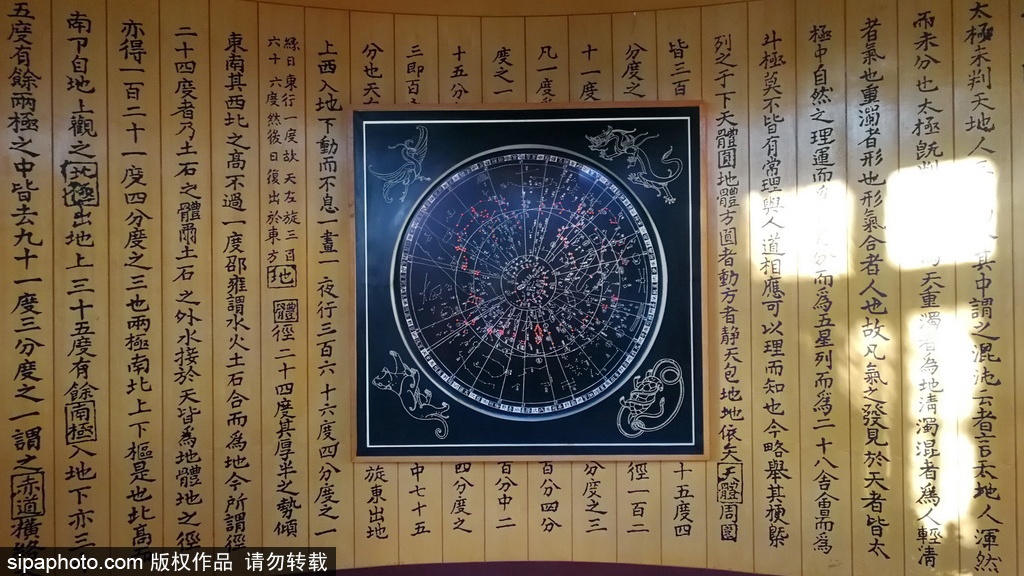 太極未判天地人其中謂之混沌云者言天地人渾然
而未分也太極既判天重濁者為地清濁混者為人輕清
者氣也重濁者形也形氣合者人也故凡氣之發見於天者皆太
極中自然之理運而分而為五星列而為二十八舍會而為
斗極莫不皆有常理與人道相應可以理而知也今略舉其梗槩
列之于下天體圓地體方圓者動方者靜天包地地依天天體周圍
皆三百
十五度四
分度之
徑一百二
十一度
分度之三
凡一度
百分四分
度之一
百分中二
十五分
四分度之
三即百
中七十五
分也天
旋東出地
上西入地下動而不息一晝一夜行三百六十六度四分度之一
緣日東行一度故天左旋三百
六十六度然後日復出於東方
地體徑二十四度其厚半之勢傾
東南其西北之高不過一度邵雍謂水火土石合而為地今所謂徑
二十四度者乃土石之體爾土石之外水接於天皆為地體地之徑
亦得一百二十一度四分度之三也兩極南北上下樞是也北高而
南下自地上觀之北極出地上三十五度有餘南極入地下亦三
五度有餘兩極之中皆去九十一度三分度之一謂之赤道橫絡
sipaphoto.com 版权作品 请勿转载